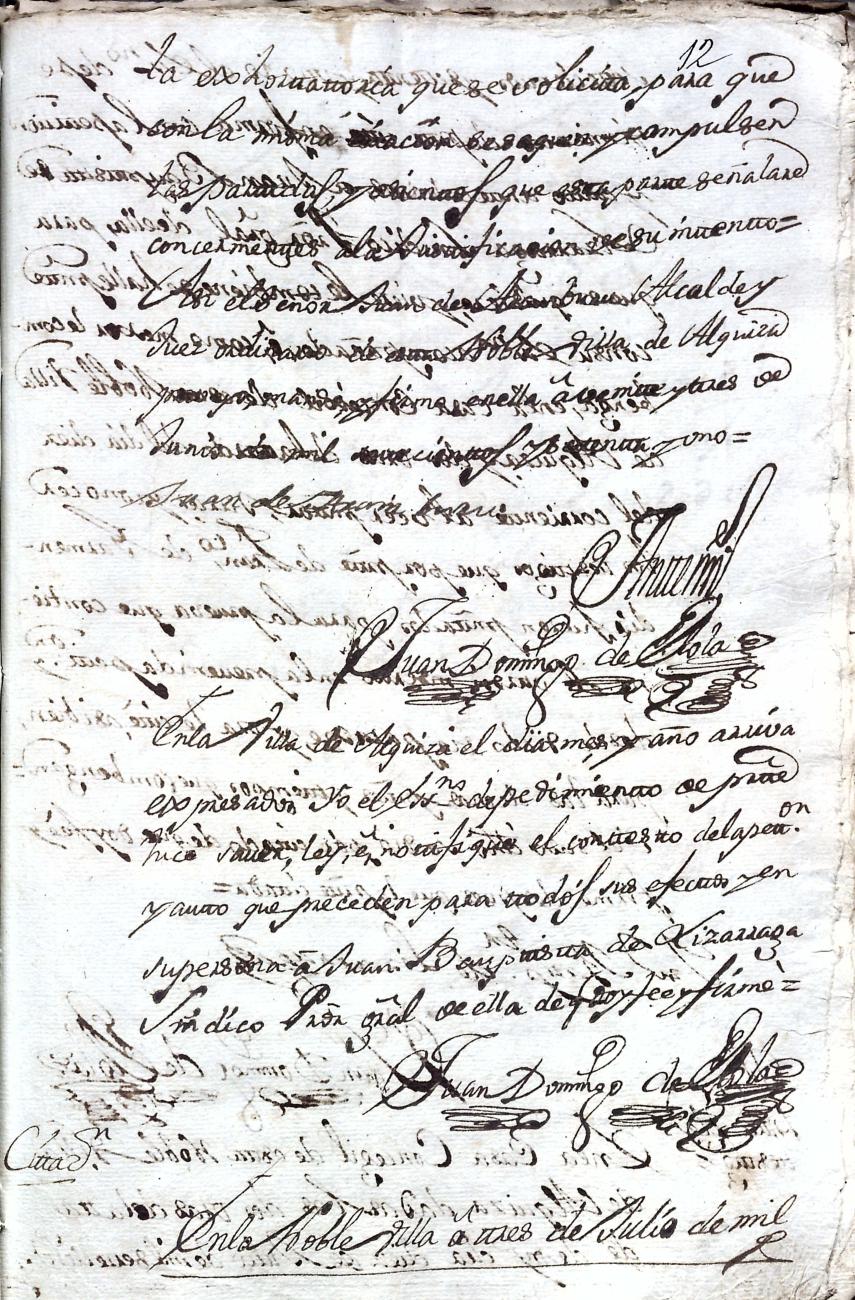 12
la exhortatoria que se solicita, para que
con la misma citacion se saquen y compulsen
las partidas, y asientos que esta parte señalare
concernientes a la Justificacion de su intento=
el Señor Juan de Alcalde y
Juez ordinario de esta Noble Villa de Alquiza
y firmo en ella a veinte y tres de
Junio de mil setecientos y setenta y uno=
Juan de
Antemi
Juan Domingo de Olola
En la Villa de Alquiza el dia mes, y año arriva
expresados Yo el Ess.no de pedimiento de parte
hice saver, ley, e notifiqué el contexto de la pett.on
y auto que preceden para todos sus efectos y en
su persona â Juan Bauptista de Lizarraga
Sindico Pror gral de ella de q doy fee y firmè=
Juan Domingo de Olola
Citac.n
En la Noble Villa â tres de Julio de mil